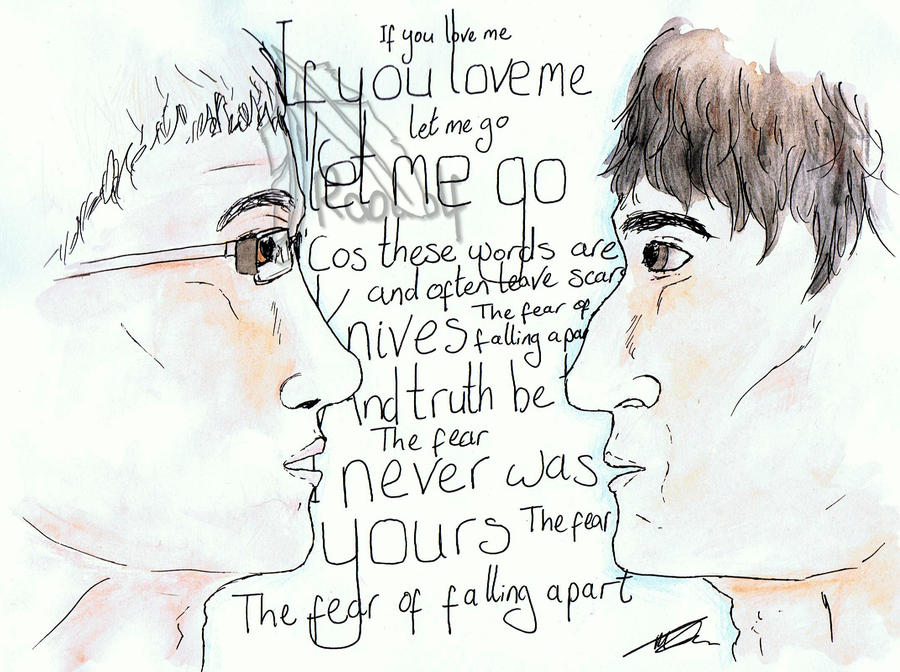 If you love me
If you love me
let me go
let me go
Cos these words are
and often leave scars
The fear of
nives falling apar
And truth be
The fear
I never was
yours The fear
The fear of falling apart